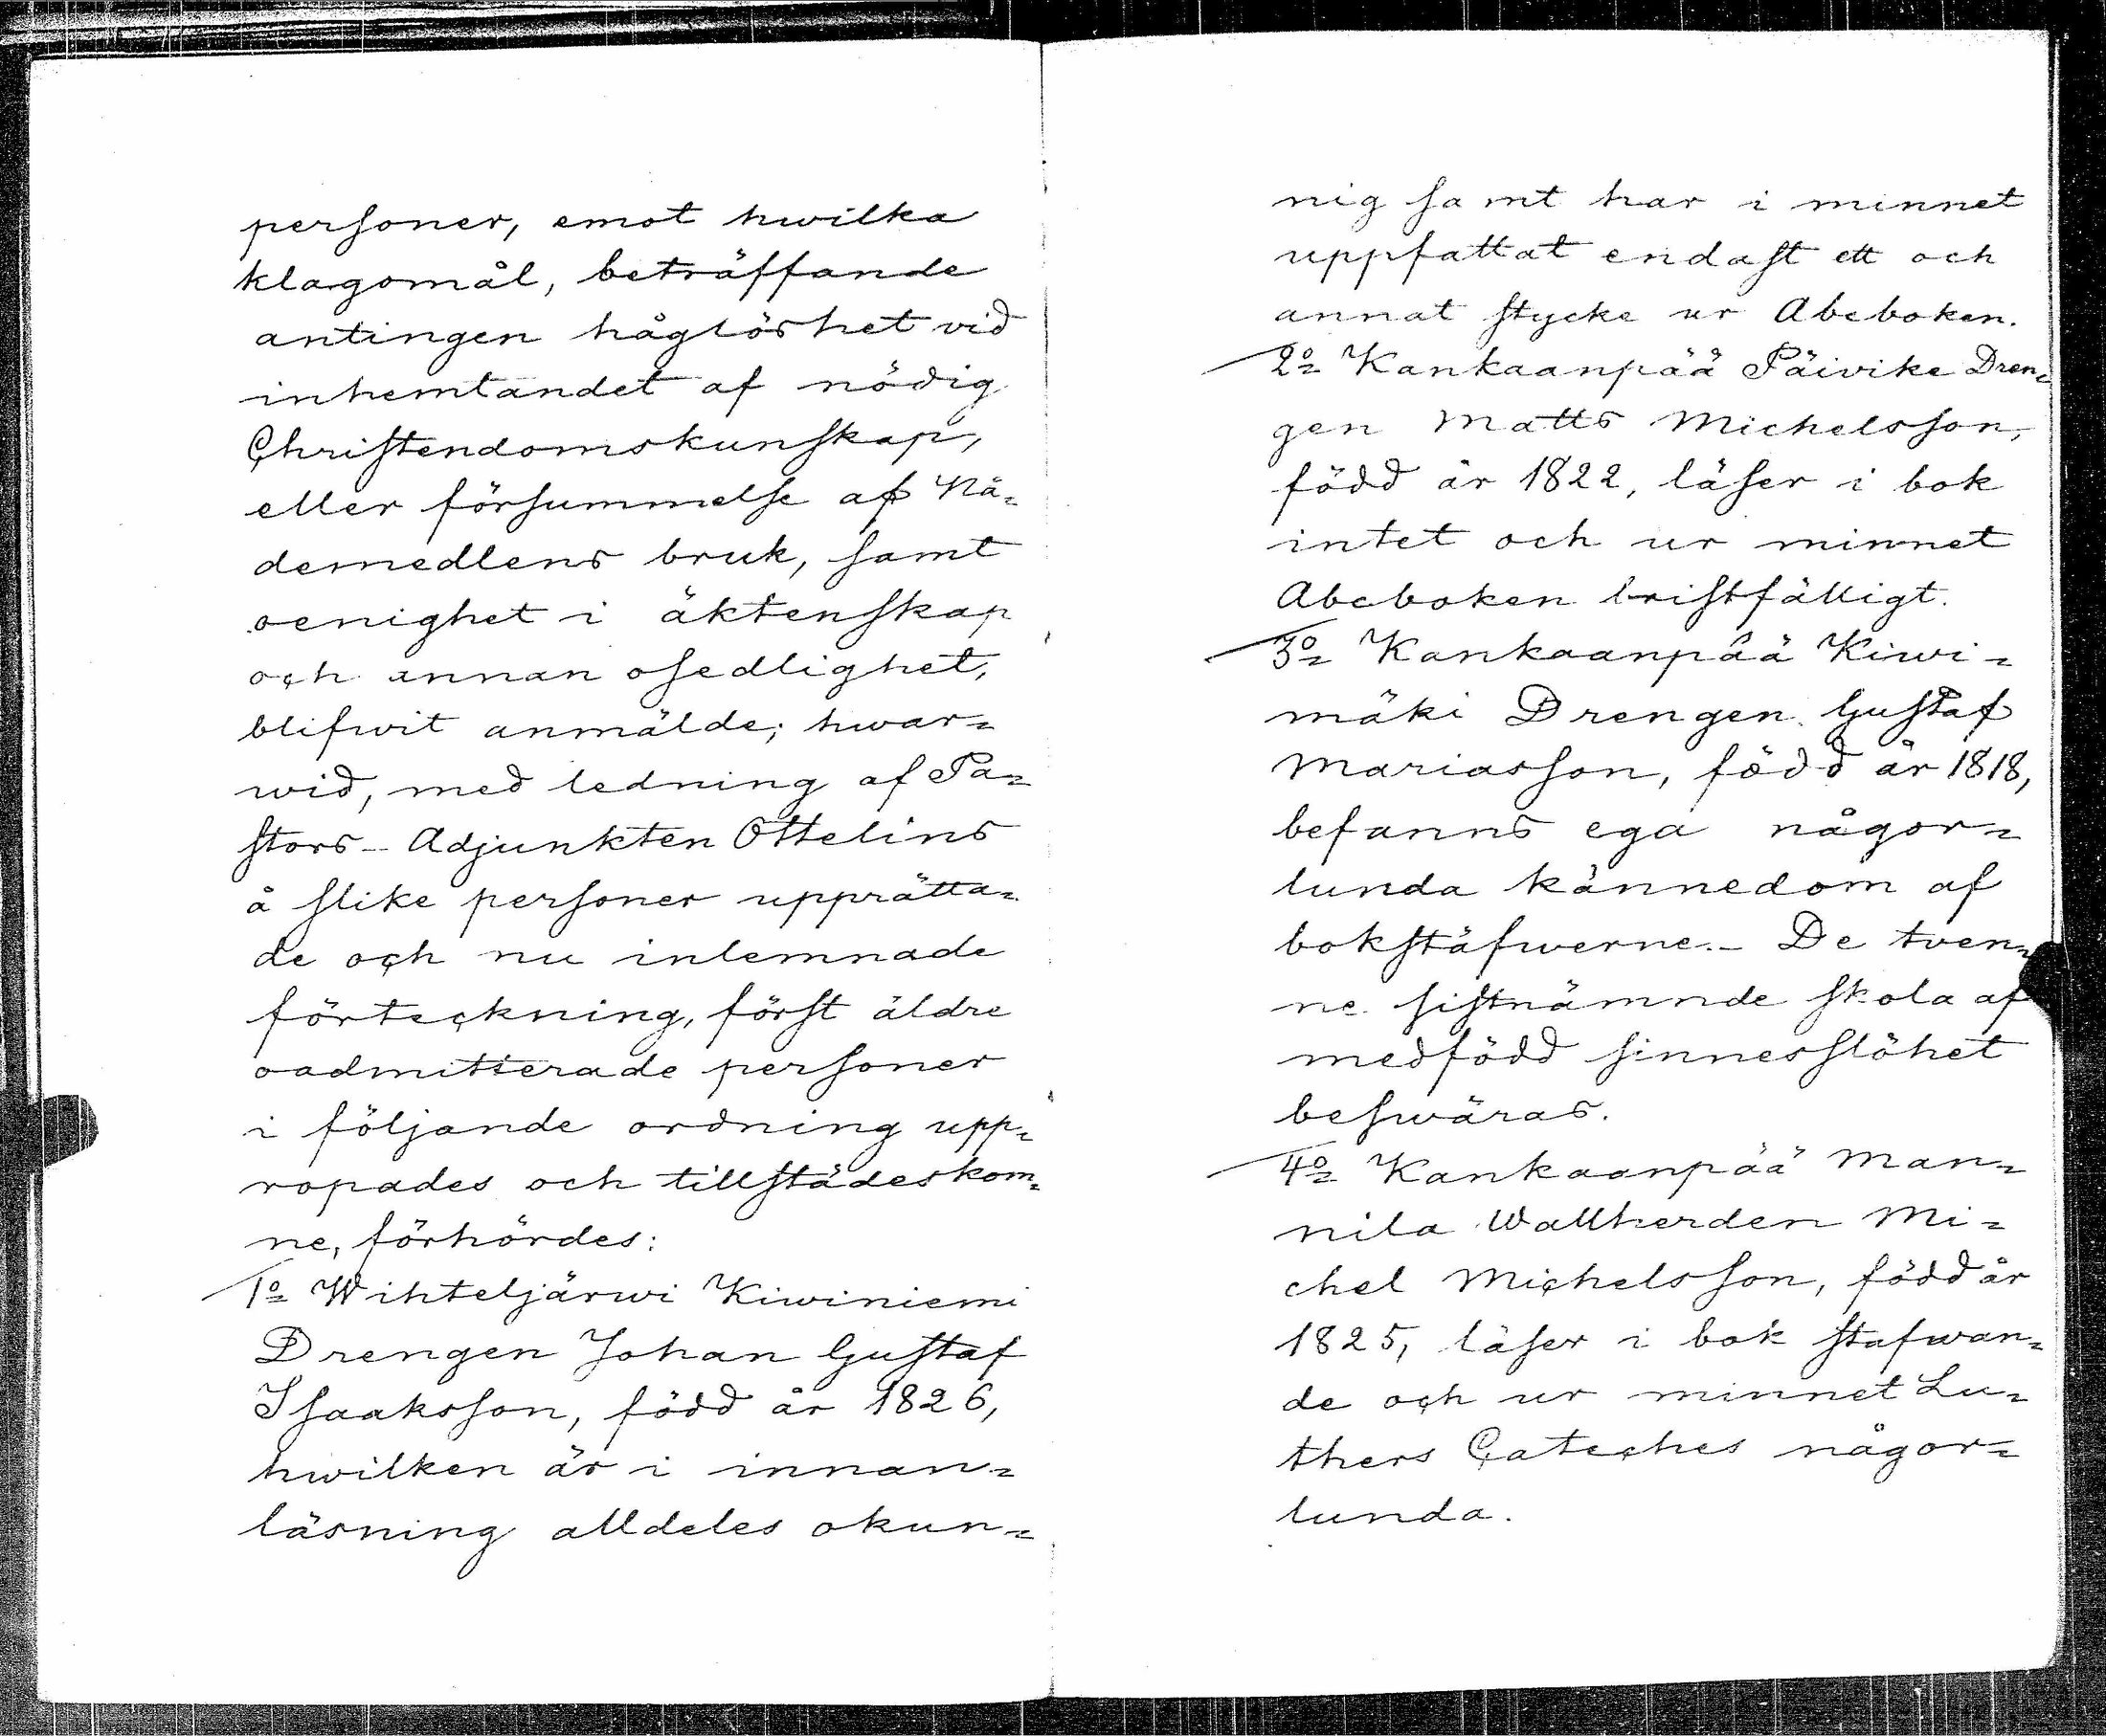 personer, emot hwilka
klagomål, beträffande
antingen håglöshet vid
inhemtandet af nödig
Christendomskunskap,
eller försummelse af Nå=
demedlens bruk, samt
oenighet i äktenskap
och annan osedlighet,
blifwit anmälde; hwar=
wid, med ledning af Pa=
stors-Adjunkten Ottelins
å slike personer upprätta=
de och nu inlemnade
förteckning, först äldre
oadmitterade personer
i följande ordning upp=
ropades och tillstädeskom=
ne, förhördes:
1o Wihteljärwi Kiwiniemi
Drengen Johan Gustaf
Isaaksson, född år 1826,
hwilken är i innan=
läsning alldeles okun=
nig samt har i minnet
uppfattat endast ett och
annat stycke ur Abcboken.
2o Kankaanpää Päivike Dren=
gen Matts Michelsson,
född år 1822, läser i bok
intet och ur minnet
Abcboken bristfälligt.
3o Kankaanpää Kiwi=
mäki Drengen Gustaf
Mariasson, född år 1818,
befanns ega någor=
lunda kännedom af
bokstäfwerne.- De tven=
ne sistnämnde skola af
medfödd sinnesslöhet
beswäras.
4o Kankaanpää Man=
nila Wallherden Mi=
chel Michelsson, född år
1825, läser i bok stafwan=
de och ur minnet Lu=
thers Cateches någor=
lunda.